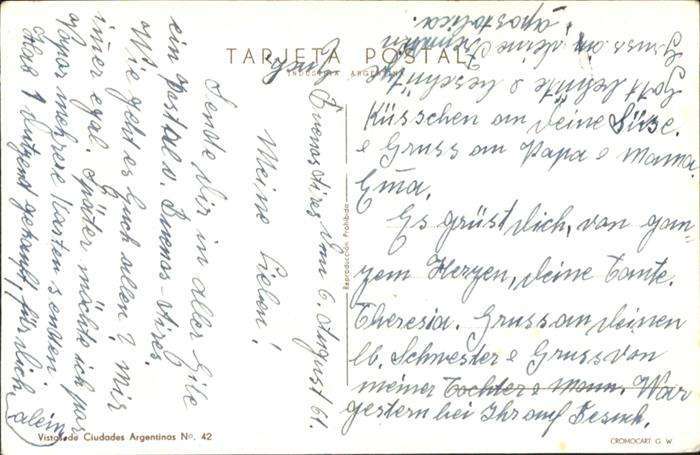 TARJETA POSTAL
INDUSTRIA ARGENTINA
Buenos Aires vom 6. August 61.
Meine Lieben!
Sende Dir in aller Eile
ein postal v. Buenos-Aires.
Wie geht es Euch allen? mir
immer egal. Später möchte ich par
Vapor mehrere Karten senden.
Hab 1 dutzent gekauft, für dich
alein
Küsschen an Deine Süsse.
e Gruss an Papa e Mama
Ema.
Es grüst Dich, von gan-
zem Herzen, deine Tante.
Theresia. Gruss an deinen
lb. Schwester e Gruss von
meiner Tochter e Mann. War
gestern bei Ihr auf Besuch.
Gott behüte e beschüt
Gruss an deine
apostolica.
Reproducción Prohibida
Vistas de Ciudades Argentinas No. 42
CROMOCART G. W.